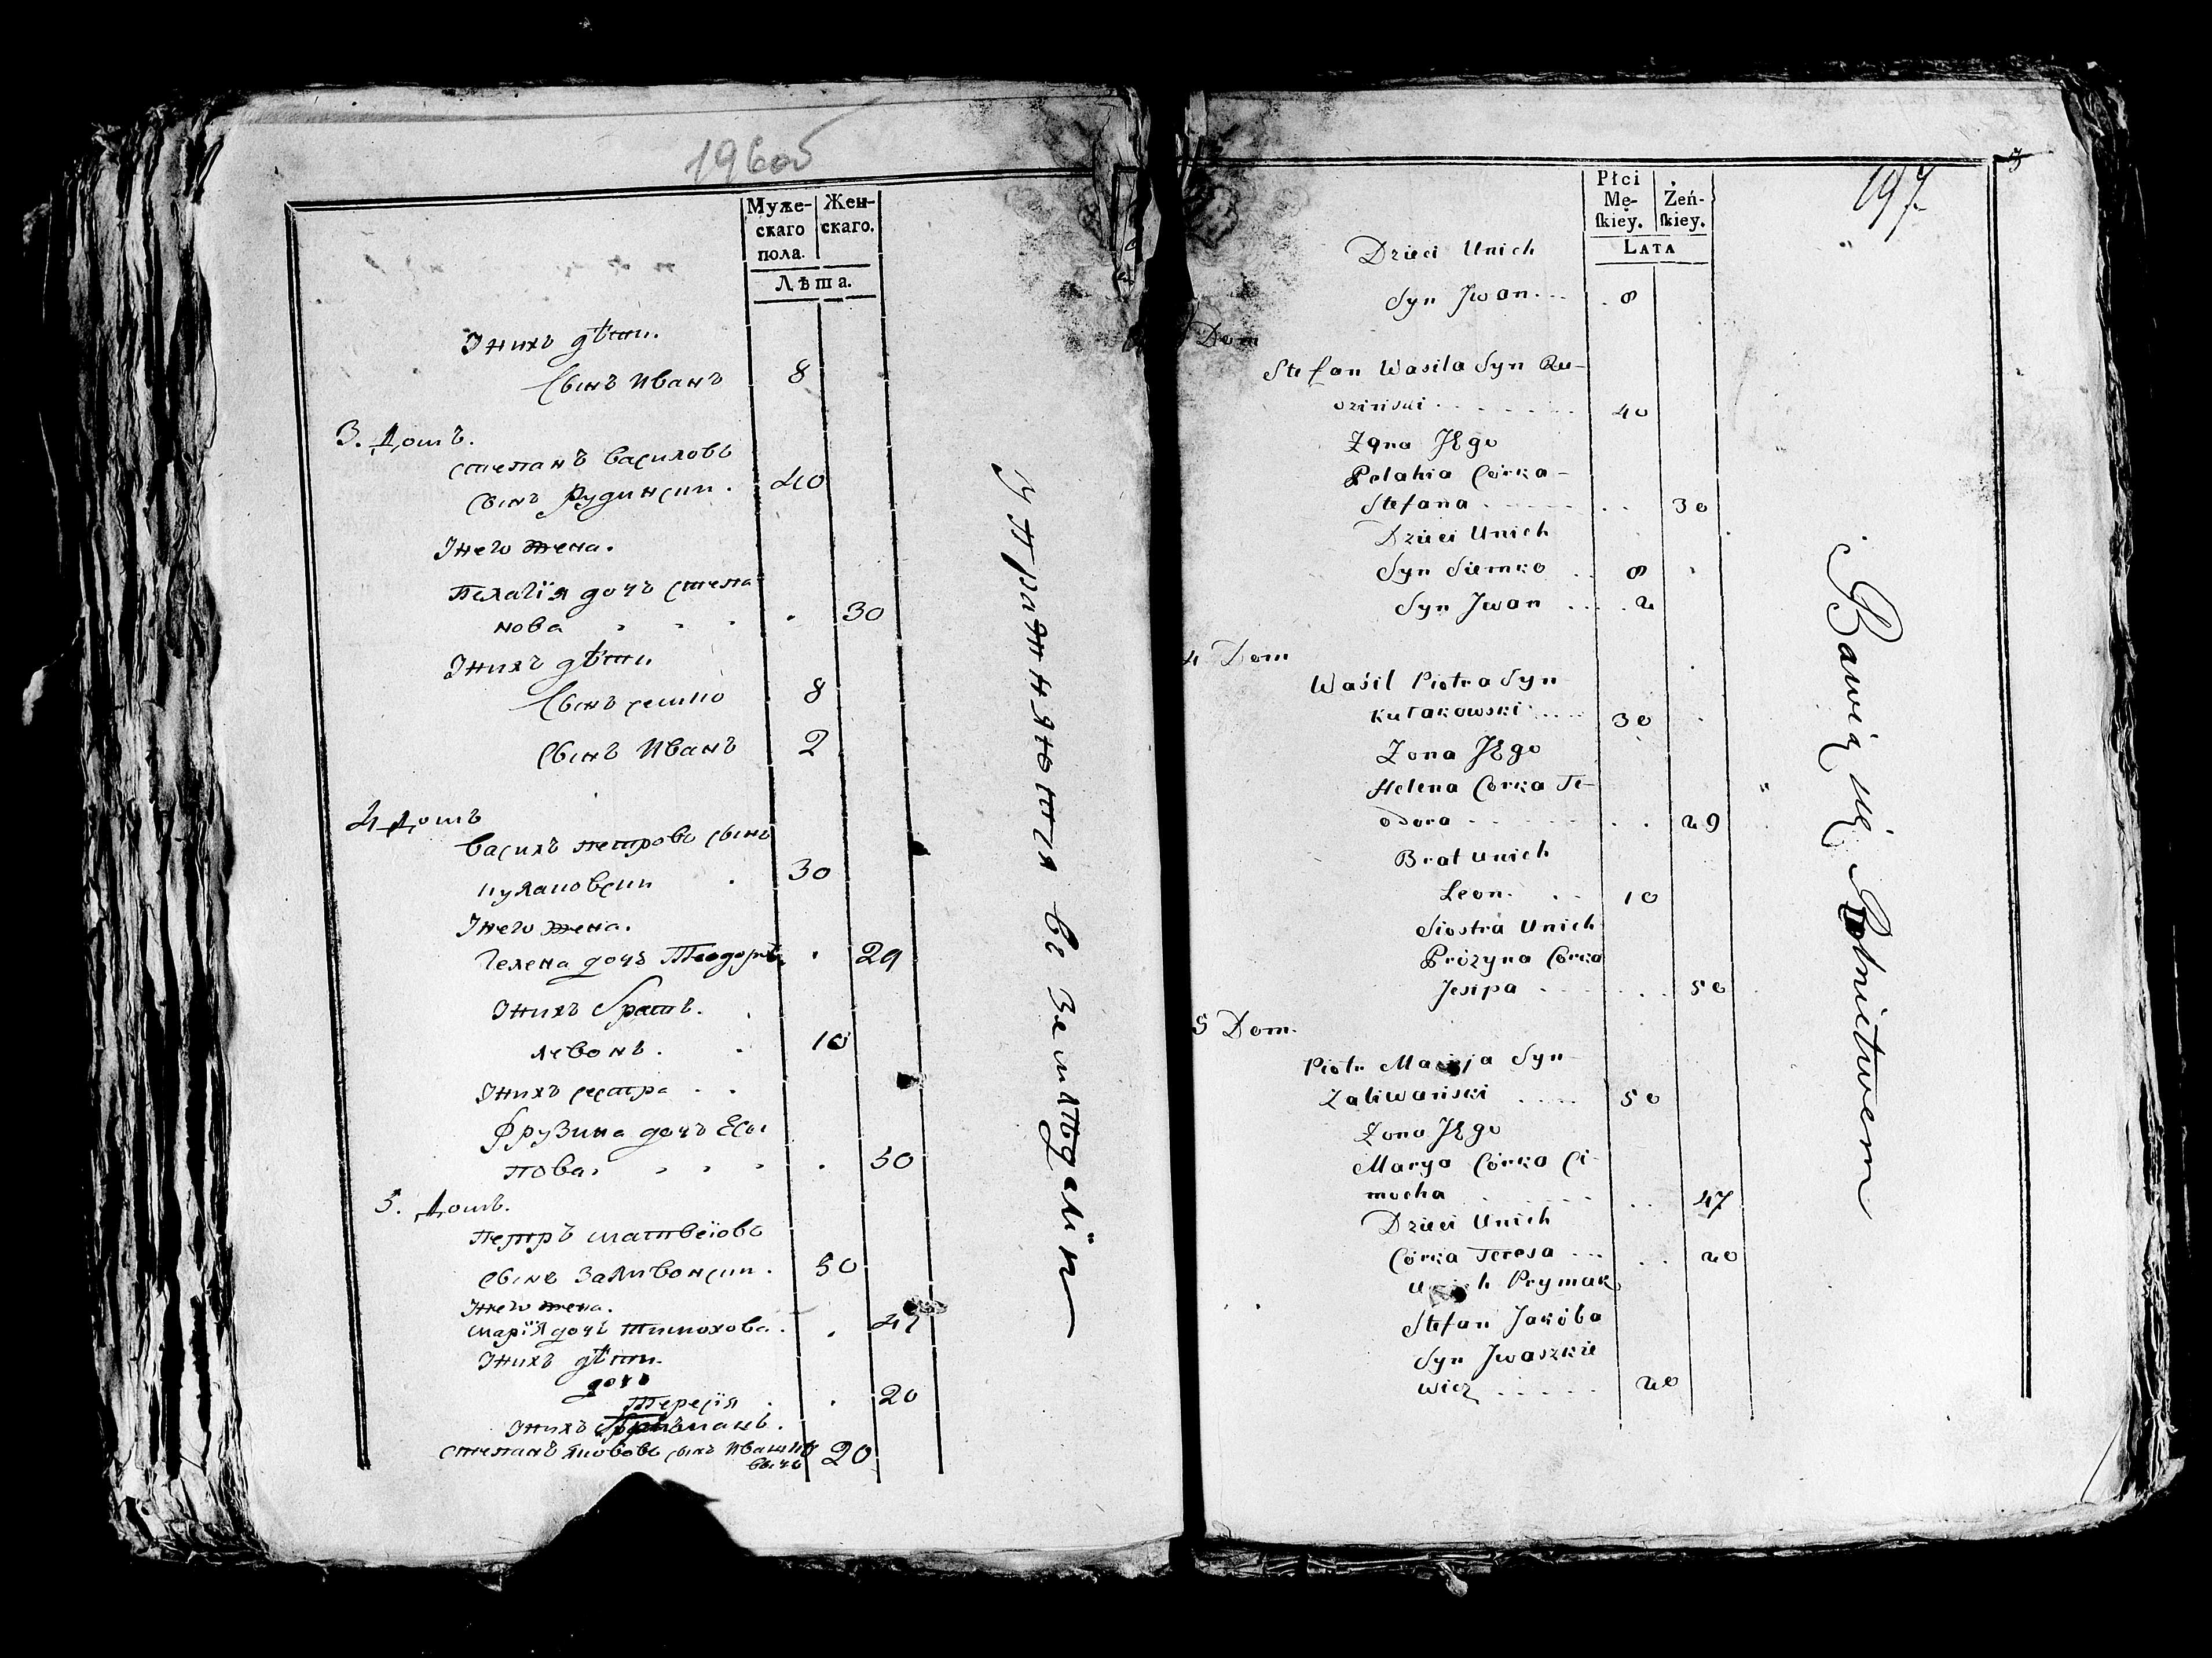 196об
Муже-
скаго
пола.
Жен-
скаго.
Лѣта.
У нихъ дѣти.
Сынъ Иванъ 8
3. Домъ.
Степанъ Василовъ
Сынъ Рудински. 40
У него жена.
Пелагія дочъ Степа
нова 30
У нихъ дѣти
Сынъ Семко 8
Сынъ Иванъ 2
4 Домъ
Василъ Петровъ Сынъ
Кулаковски 30
У него жена.
Гелена дочъ Теодора 29
У нихъ братъ.
Левонъ. 10
У нихъ сестра
Фрузина дочъ Еси
пова. 50
5. Домъ.
Петръ Матвеіовъ
Сынъ Заливонски. 50
У него жена.
Марія дочъ Тимохова. 47
У нихъ дѣти.
дочъ
Тересія 20
У нихъ
Степанъ Якововъ сынъ Ивашке
вичъ 20
Упражняются въ земледелїи
197
Płci
Mę-
skiey.
Żeń-
skiey.
LATA
Dzieci Unich
Syn Jwan 8
Dom
Stefan Wasila Syn Ru-
dziński 40
Zona JEgo
Pelahia Córka
Stefana 30
Dzieci Unich
Syn Siemko 8
Syn Jwan 2
4 Dom
Waśil Piotra Syn
Kułakowski 30
Zona JEgo
Helena Corka Te-
odora 29
Brat unich
Leon. 10
Siostra Unich
Prózyna Córka
Jesipa 50
5 Dom.
Piotr Macieja Syn
Zaliwański 50
Zona JEgo
Marya Córka Ci-
mocha 47
Dzieci Unich
Córka Teresa 20
Unich Prymak
Stefan Jakóba
Syn Jwaszkie
wicz 20
Bawią się Rolnictwem